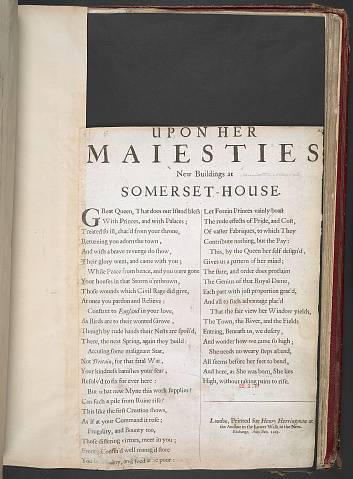 UPON HER
MAIESTIES
New Buildings at
SOMERSET-HOUSE.
GReat Queen, That does our Island bless
With Princes, and with Palaces;
Treated so ill, chac'd from your throne,
Returning you adorn the town,
And with a brave revenge do show,
Their glory went, and came with you;
While Peace from hence, and you were gone
Your houses in that Storm o'rethrown,
Those wounds which Civil Rage did give,
At once you pardon and Relieve:
Constant to England in your love,
As Birds are to their wonted Grove,
Though by rude hands their Nests are spoil'd,
There, the next Spring, again they build:
Accusing some malignant Star,
Not Britain, for that fatal War,
Your kindness banishes your fear,
Resolv'd to fix for ever here:
But what new Myne this work supplies?
Can such a pile from Ruine rise?
This like the first Creation shows,
As if at your Command it rose;
Frugality, and Bounty too,
Those differing virtues, meet in you;
From Confin'd well manag'd store
You both employ, and feed the poor:
Let Forein Princes vainly boast
The rude effects of Pride, and Cost,
Of vaster Fabriques, to which They
Contribute nothing, but the Pay:
This, by the Queen her self design'd,
Gives us a pattern of her mind;
The state, and order does proclaim
The Genius of that Royal Dame,
Each part with just proportion grac'd,
And all to such advantage plac'd
That the fair view her Window yields,
The Town, the River, and the Fields
Entring, Beneath us, we descry,
And wonder how we came so high;
She needs no weary steps ascend,
All seems before her feet to bend,
And here, as She was born, She lies
High, without taking pains to rise.
London, Printed for Henry Herringman at
the Anchor in the Lower Walk in the New-
Exchange,